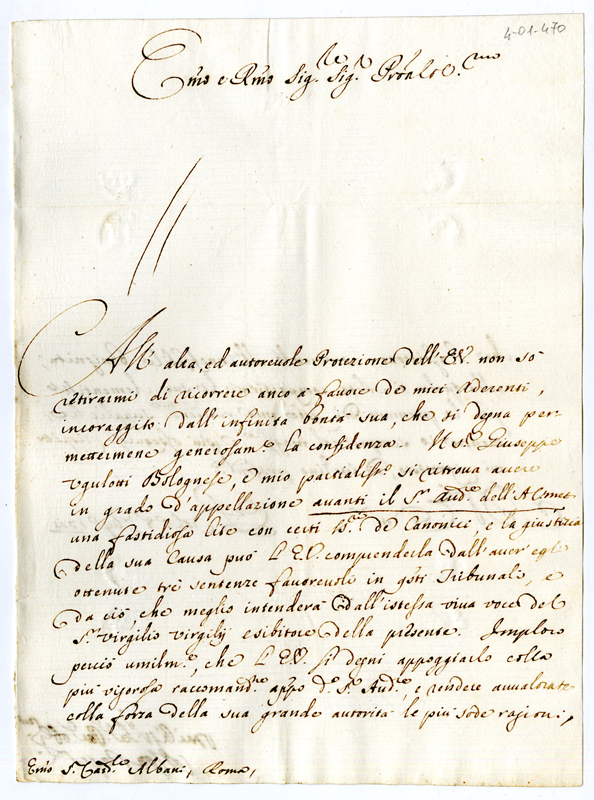 4-01-470
Emo e Rmo Sig.re Sig.r Pron Col.mo
All' alta, ed autorevole Protezione dell' E.V. non so
ritirarmi di ricorrere anco a favore de miei Aderenti,
incoraggito dall' infinita bontà sua, che si degna per-
mettermene generosam.e la confidenza. Il S.r Giuseppe
Ugulotti Bolognese, e mio partialiss.o si ritrova avere
in grado d'appellazione avanti il S.r Aud.re dell' A
una fastidiosa lite con certi SS.ri de Canonici, e la giustizia
della sua Causa può l' E.V. comprenderla dall' aver egli
ottenute tre sentenze favorevole in qsti Tribunali, e
da ciò, che meglio intenderà dall' istessa viva voce del
S.r Virgilio Virgilij esibitore della presente. Imploro
perciò umilm.e, che l' E.V. si degni appoggiarlo colla
più vigorosa raccomand.ne appo d.o S.r Aud.re, e rendere avvalorate
colla forza della sua grande autorità le più sode ragioni,
Emo S.r Card.le Albani, Roma,